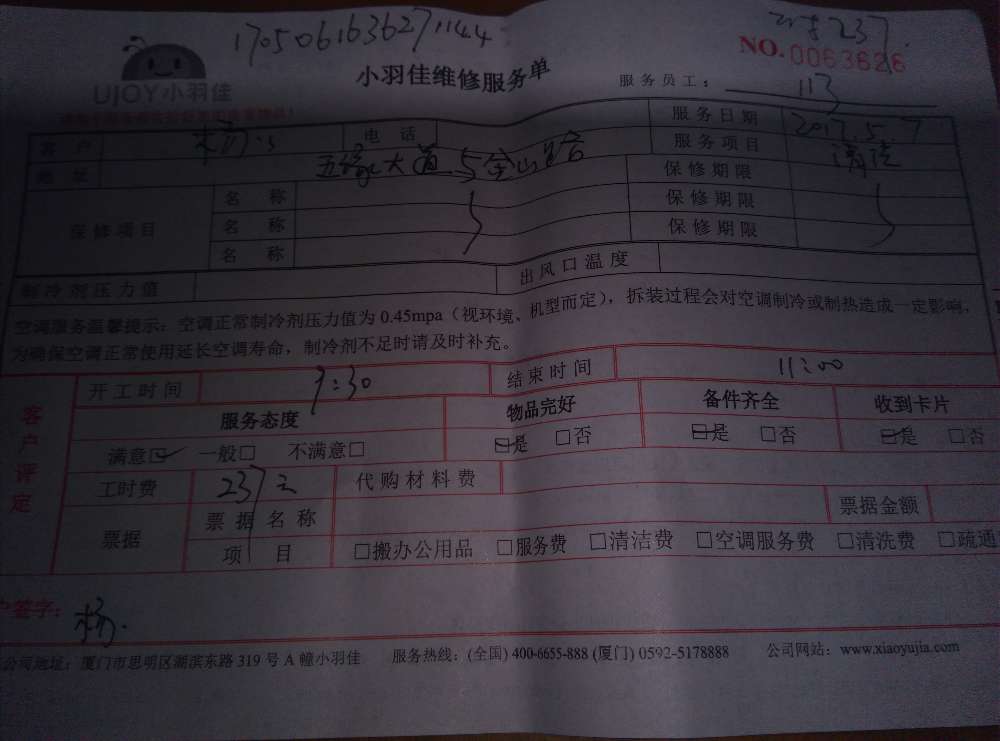 1705061636271144
237
NO.0063626
UJOY小羽佳
小羽佳维修服务单
服务员工：113
客户 杨 电话 服务日期 2017.5.7
地址 五缘湾大道与金山路 服务项目 清洗
保修项目 名称 保修期限
名称 保修期限
名称 保修期限
制冷剂压力值 出风口温度
空调服务温馨提示：空调正常制冷剂压力值为 0.45mpa（视环境、机型而定），拆装过程会对空调制冷或制热造成一定影响，
为确保空调正常使用延长空调寿命，制冷剂不足时请及时补充。
客户评定
开工时间 9:30 结束时间 11:00
服务态度 物品完好 备件齐全 收到卡片
满意☑ 一般□ 不满意□ ☑是 □否 ☑是 □否 ☑是 □否
工时费 237元 代购材料费
票据 票据名称 票据金额
项目 □搬办公用品 □服务费 □清洁费 □空调服务费 □清洗费 □疏通
户签字：杨
公司地址：厦门市思明区湖滨东路 319 号 A 幢小羽佳 服务热线：(全国) 400-6655-888 (厦门) 0592-5178888 公司网站：www.xiaoyujia.com